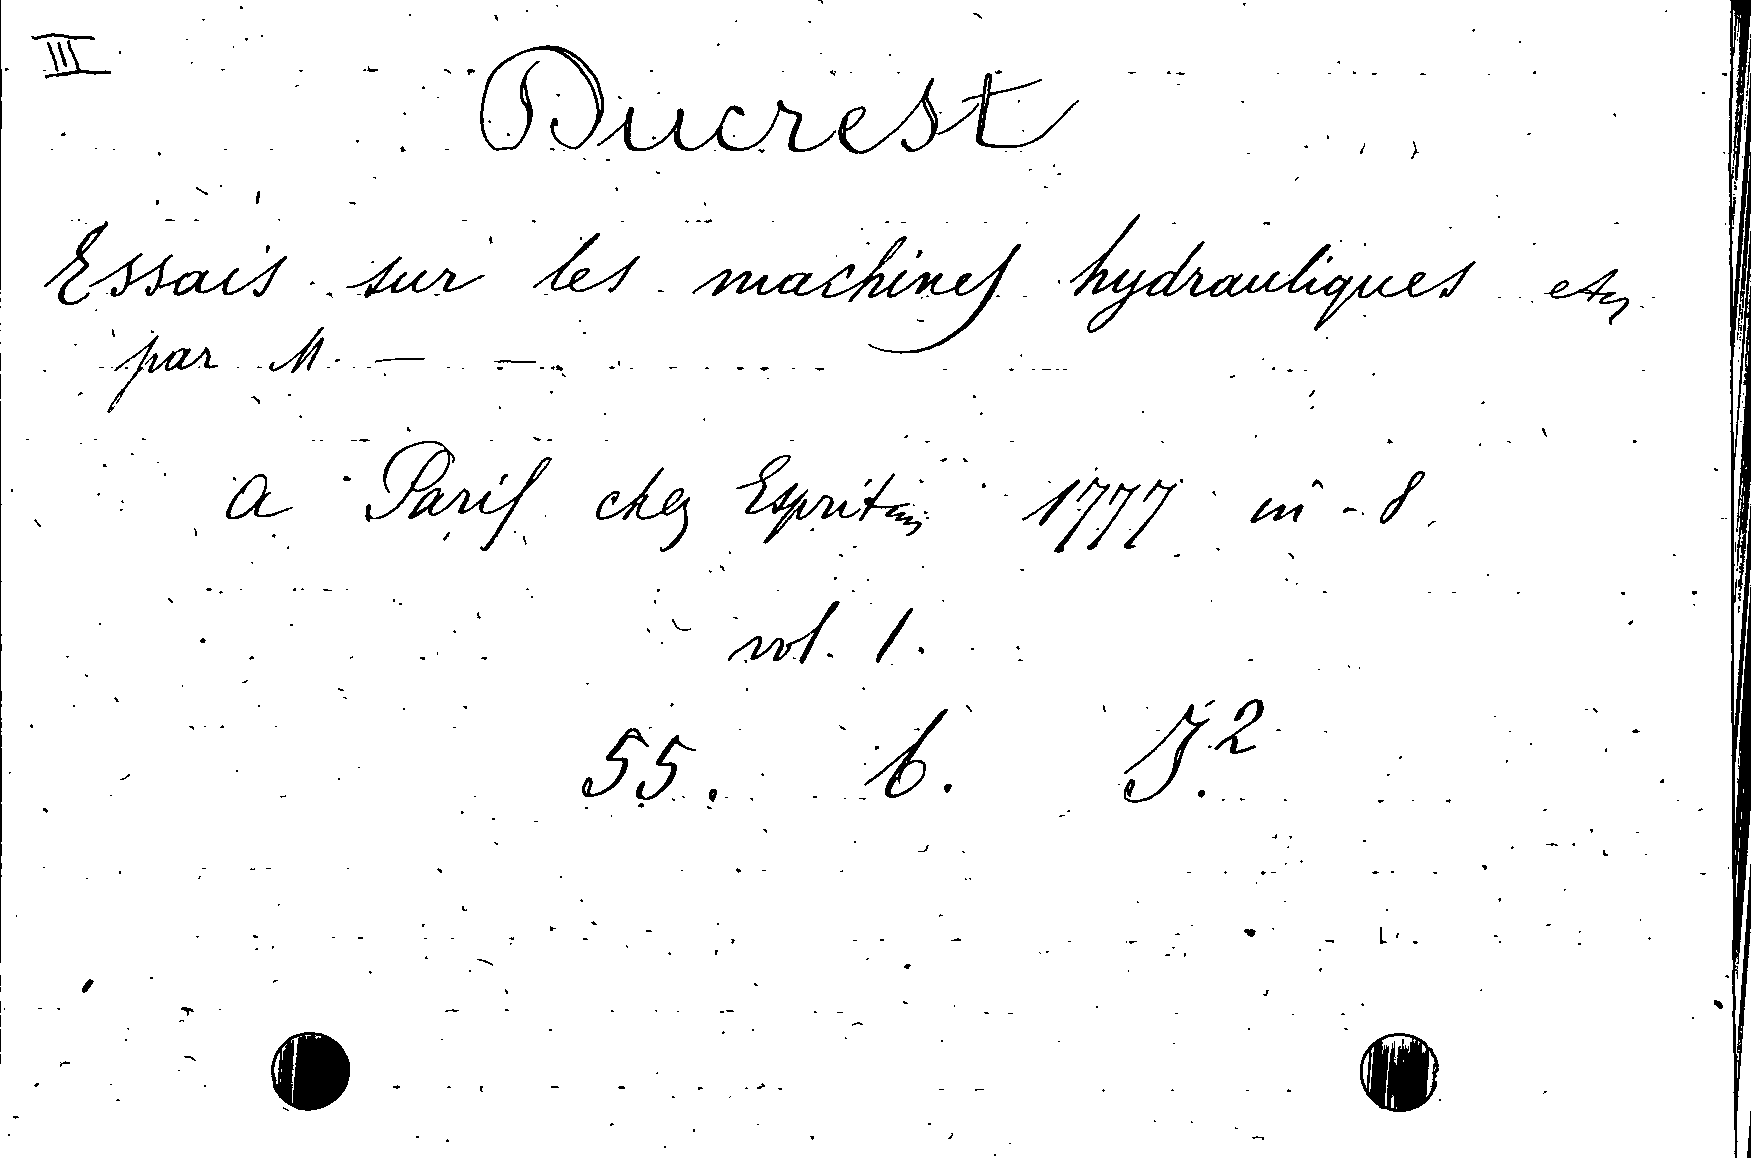 III
Ducrest
Essais sur les machines hydrauliques etc
par M. — —
a Paris chez Esprit 1777 in-8.
vol. 1.
55. b. J.²